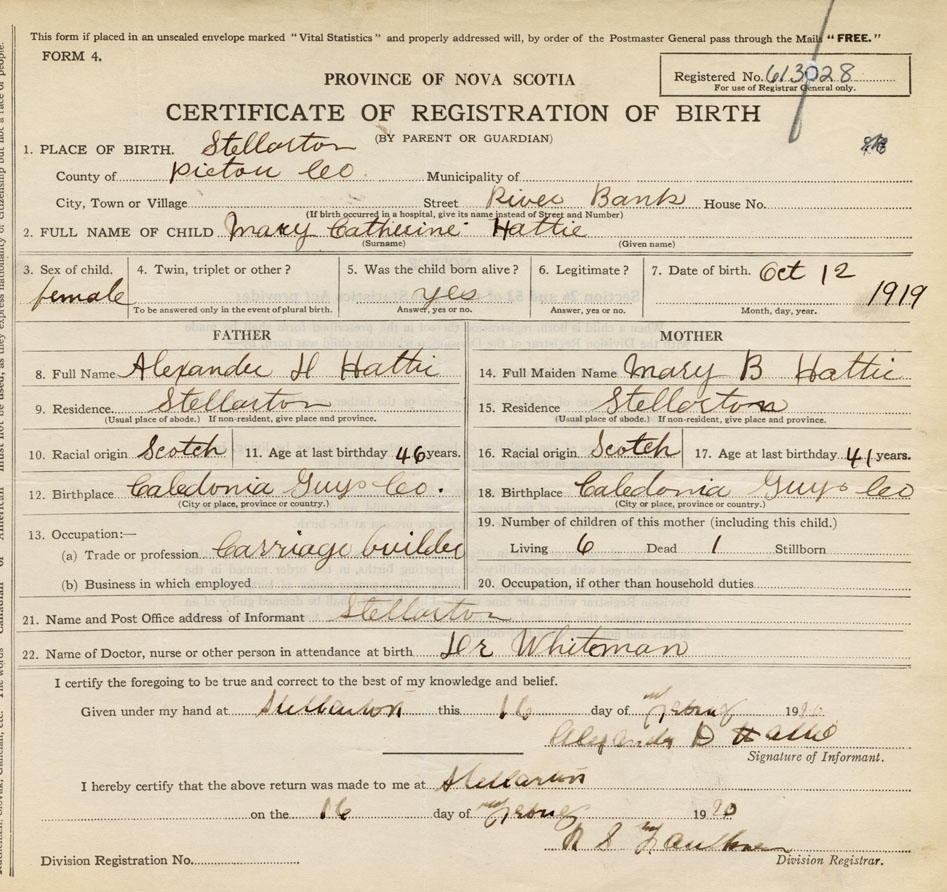 This form if placed in an unsealed envelope marked "Vital Statistics" and properly addressed will, by order of the Postmaster General pass through the Mails "FREE."
FORM 4.
PROVINCE OF NOVA SCOTIA
Registered No. 613028
For use of Registrar General only.
CERTIFICATE OF REGISTRATION OF BIRTH
(BY PARENT OR GUARDIAN)
1. PLACE OF BIRTH. Stellarton
County of Pictou Co. Municipality of
City, Town or Village Street River Bank House No.
(If birth occurred in a hospital, give its name instead of Street and Number)
2. FULL NAME OF CHILD Mary Catherine Hattie
(Surname) (Given name)
3. Sex of child. 4. Twin, triplet or other? 5. Was the child born alive? 6. Legitimate? 7. Date of birth. Oct 12
female yes 1919
To be answered only in the event of plural birth. Answer, yes or no. Answer, yes or no. Month, day, year.
FATHER MOTHER
8. Full Name Alexander D Hattie 14. Full Maiden Name Mary B Hattie
9. Residence Stellarton 15. Residence Stellarton
(Usual place of abode.) If non-resident, give place and province. (Usual place of abode.) If non-resident, give place and province.
10. Racial origin Scotch 11. Age at last birthday 46 years. 16. Racial origin Scotch 17. Age at last birthday 41 years.
12. Birthplace Caledonia Guys Co. 18. Birthplace Caledonia Guys Co
(City or place, province or country.) (City or place, province or country.)
13. Occupation:— 19. Number of children of this mother (including this child.)
(a) Trade or profession Carriage builder Living 6 Dead 1 Stillborn
(b) Business in which employed 20. Occupation, if other than household duties
21. Name and Post Office address of Informant Stellarton
22. Name of Doctor, nurse or other person in attendance at birth Dr Whiteman
I certify the foregoing to be true and correct to the best of my knowledge and belief.
Given under my hand at Stellarton this 16 day of 1920
Alexander D Hattie
Signature of Informant.
I hereby certify that the above return was made to me at Stellarton
on the 16 day of 1920
R S
Division Registration No. Division Registrar.